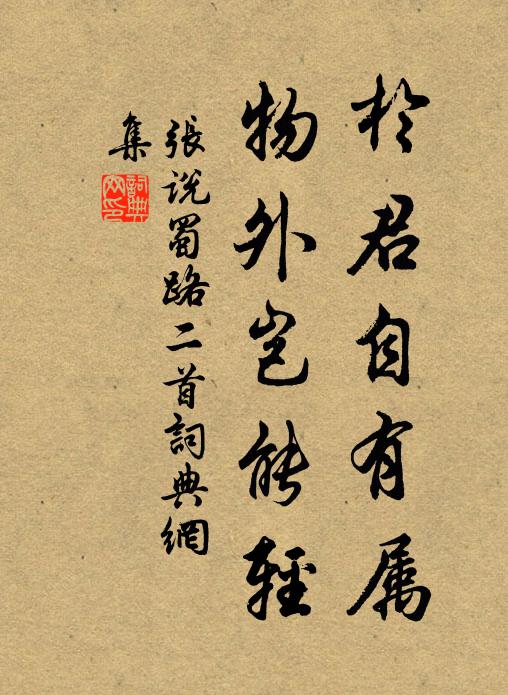 於君自有属
物外岂能輕
張说蜀路二首詞典網
集
詞典
网印